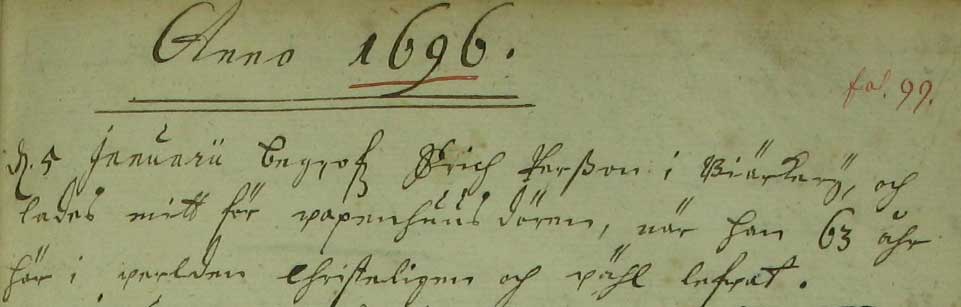 Anno 1696.
fol. 99.
d. 5 Januarii begrofz Erich Perßon i Biörkerÿ, och
lades mitt för vapenhuus dören, när han 63 åhr
här i verlden Christeligen och vähl lefvat.